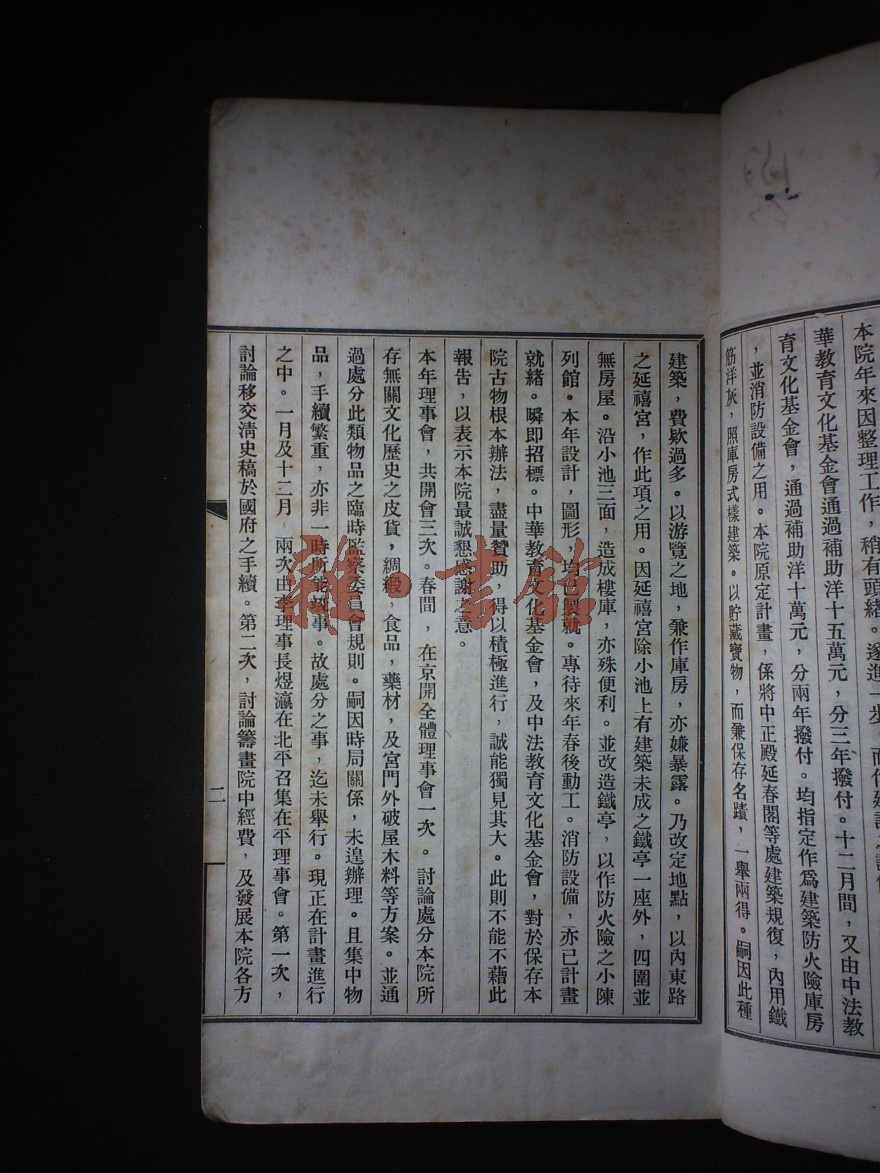 本院年來因整理工作，稍有頭緒。遂進一步，而作建設之
華教育文化基金會通過補助洋十五萬元，分三年撥付。十二月間，又由中法教
育文化基金會，通過補助洋十萬元，分兩年撥付。均指定作爲建築防火險庫房
，並消防設備之用。本院原定計畫，係將中正殿延春閣等處建築規復，內用鐵
筋洋灰，照庫房式樣建築。以貯藏寶物，而兼保存名蹟，一舉兩得。嗣因此種
建築，費欵過多。以游覽之地，兼作庫房，亦嫌暴露。乃改定地點，以內東路
之延禧宮，作此項之用。因延禧宮除小池上有建築未成之鐵亭一座外，四圍並
無房屋。沿小池三面，造成樓庫，亦殊便利。並改造鐵亭，以作防火險之小陳
列館。本年設計，圖形，均已製就。專待來年春後動工。消防設備，亦已計畫
就緒。瞬即招標。中華教育文化基金會，及中法教育文化基金會，對於保存本
院古物根本辦法，盡量贊助，得以積極進行，誠能獨見其大。此則不能不藉此
報告，以表示本院最誠懇感謝之意。
本年理事會，共開會三次。春間，在京開全體理事會一次。討論處分本院所
存無關文化歷史之皮貨，綢緞，食品，藥材，及宮門外破屋木料等方案。並通
過處分此類物品之臨時監察委員會規則。嗣因時局關係，未遑辦理。且集中物
品，手續繁重，亦非一時所能竣事。故處分之事，迄未舉行。現正在計畫進行
之中。一月及十二月，兩次由李理事長煜瀛在北平召集在平理事會。第一次，
討論移交清史稿於國府之手續。第二次，討論籌畫院中經費，及發展本院各方
二
雜·書館